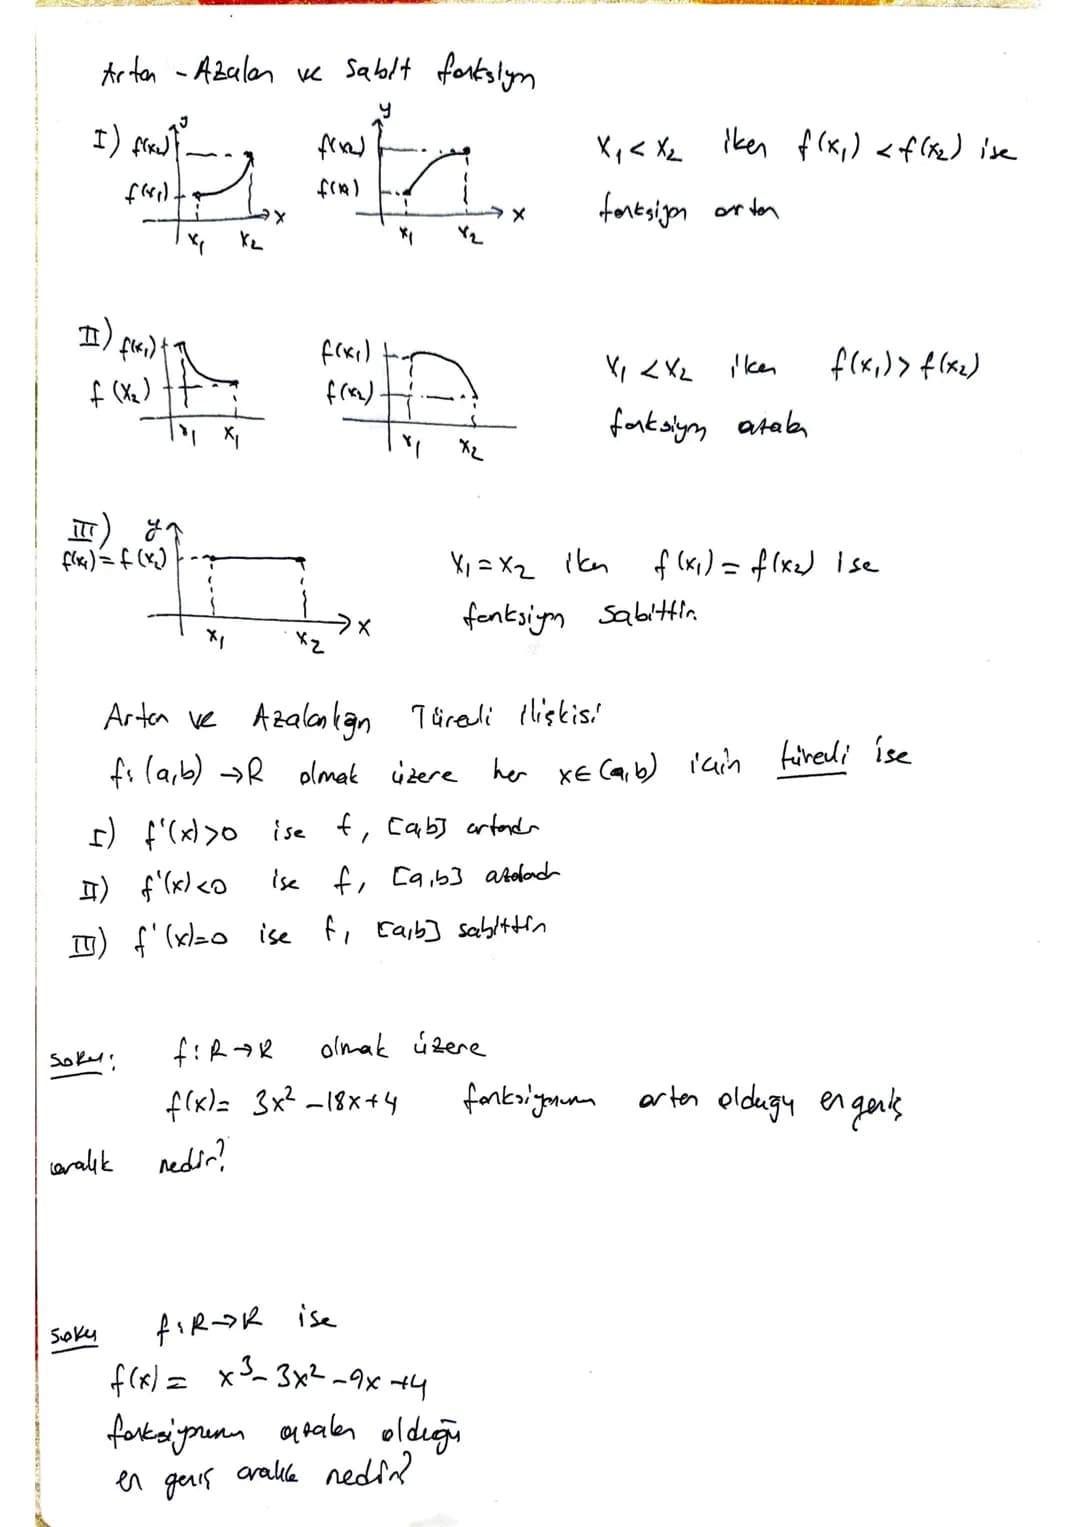 Artan - Azalan ve Sabit fonksiyon
I) f(x₂) y f(x₂) y x₁ < x₂ iken f(x₁) < f(x₂) ise
f(x₁) x f(x₁) x fonksiyon artan
x₁ x₂ x₁ x₂
II) f(x₁) f(x₁) x₁ < x₂ iken f(x₁) > f(x₂)
f(x₂) f(x₂) fonksiyon azalan
x₁ x₁ x₂
III) y
f(x₁) = f(x₂) x₁ = x₂ iken f(x₁) = f(x₂) ise
x fonksiyon sabittir.
x₁ x₂
Artan ve Azalanlığın Türevli İlişkisi
f: (a,b) → R olmak üzere her x ∈ (a,b) için türevli ise
I) f'(x)>0 ise f, [a,b] artandır
II) f'(x)<0 ise f, [a,b] azalandır
III) f'(x)=0 ise f, [a,b] sabittir
Soru: f: R → R olmak üzere
f(x) = 3x² - 18x + 4 fonksiyonunun artan olduğu en geniş
aralık nedir?
Soru f: R → R ise
f(x) = x³ - 3x² - 9x + 4
fonksiyonunun azalan olduğu
en geniş aralık nedir?